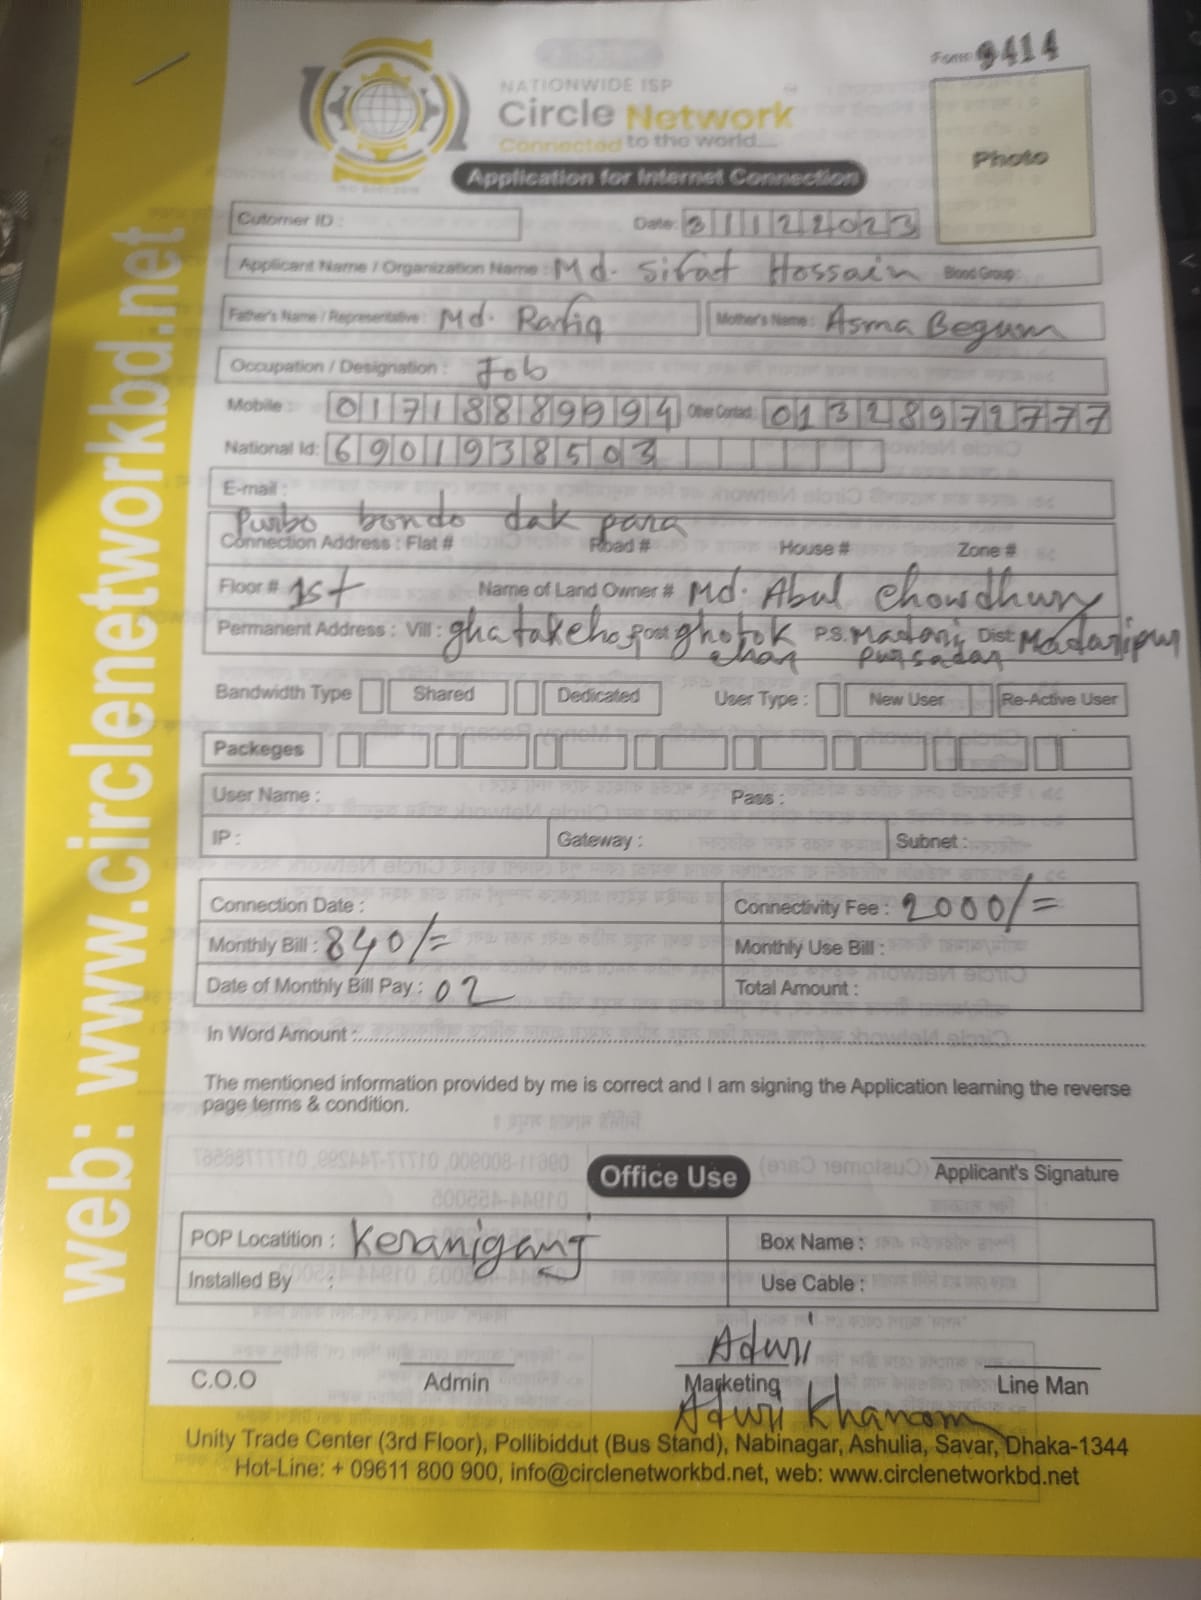 Form: 9414
NATIONWIDE ISP
Circle Network
Connected to the world....
Photo
Application for Internet Connection
Cutomer ID :
Date: 31122023
Applicant Name / Organization Name : Md. Sifat Hossain Blood Group:
Father's Name / Representative : Md. Rafiq Mother's Name : Asma Begum
Occupation / Designation : Job
Mobile : 01718889994 Other Contact: 01328972777
National Id: 6901938503
E-mail :
Purbo bondo dak para
Connection Address : Flat # Road # House # Zone #
Floor # 1st Name of Land Owner # Md. Abul Chowdhury
Permanent Address : Vill : Post ghotok char P.S. Dist: Madaripur
Bandwidth Type Shared Dedicated User Type : New User Re-Active User
Packeges
User Name : Pass :
IP : Gateway : Subnet :
Connection Date : Connectivity Fee : 2000/=
Monthly Bill : 840/= Monthly Use Bill :
Date of Monthly Bill Pay : 02 Total Amount :
In Word Amount :
The mentioned information provided by me is correct and I am signing the Application learning the reverse
page terms & condition.
Applicant's Signature
Office Use
POP Locatition : Keranigang Box Name :
Installed By : Use Cable :
Aduri
C.O.O Admin Marketing Line Man
Aduri Khanom
Unity Trade Center (3rd Floor), Pollibiddut (Bus Stand), Nabinagar, Ashulia, Savar, Dhaka-1344
Hot-Line: + 09611 800 900, info@circlenetworkbd.net, web: www.circlenetworkbd.net
web: www.circlenetworkbd.net